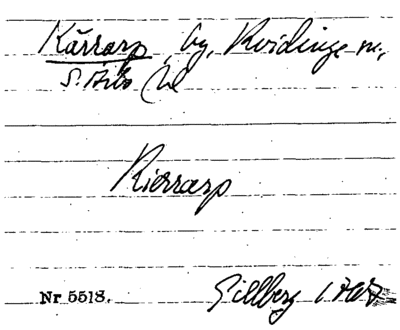 Kärrarp, by, Kvidinge sn.,
S. Åsbo
Kierrarp
Nr 5513. Gillberg 1767